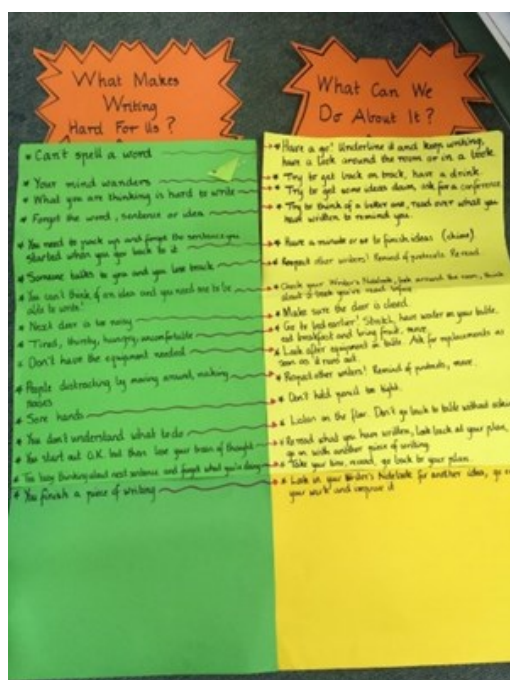 What Makes
Writing
Hard For Us?
* Can't spell a word
* Your mind wanders
* What you are thinking is hard to write
* Forget the word, sentence or idea
* You need to pack up and forget the sentence you
started when you go back to it.
* Someone talks to you and you lose track
* You can't think of an idea and you need one to be
able to write!
* Next door is too noisy
* Tired, thirsty, hungry, uncomfortable
* Don't have the equipment needed
* People distracting by moving around, making
noises
* Sore hands
* You don't understand what to do
* You start out O.K. but then lose your train of thought
* Too busy thinking about next sentence and forget what you're doing
* You finish a piece of writing
What Can We
Do About It?
* Have a go! Underline it and keep writing,
have a look around the room or in a book.
* Try to get back on track, have a drink.
* Try to get some ideas down, ask for a conference.
* Try to think of a better one, read over what you
have written to remind you.
* Have a minute or so to finish ideas (chime)
* Respect other writers! Remind of protocols. Re read.
* Check your Writer's Notebook, look around the room, think
about a book you've read before
* Make sure the door is closed.
* Go to bed earlier! Stretch, have water on your table,
eat breakfast and bring fruit, move.
* Look after equipment on table. Ask for replacements as
soon as it runs out.
* Respect other writers! Remind of protocols, move.
* Don't hold pencil too tight.
* Listen on the floor. Don't go back to table without asking
* Re read what you have written, look back at your plan,
go on with another piece of writing.
* Take your time, reread, go back to your plan.
* Look in your Writer's Notebook for another idea, go
your work and improve it